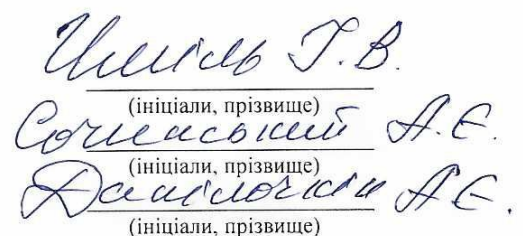 Т.В.
(ініціали, прізвище)
А.Є.
(ініціали, прізвище)
Данілочкін А.Є.
(ініціали, прізвище)